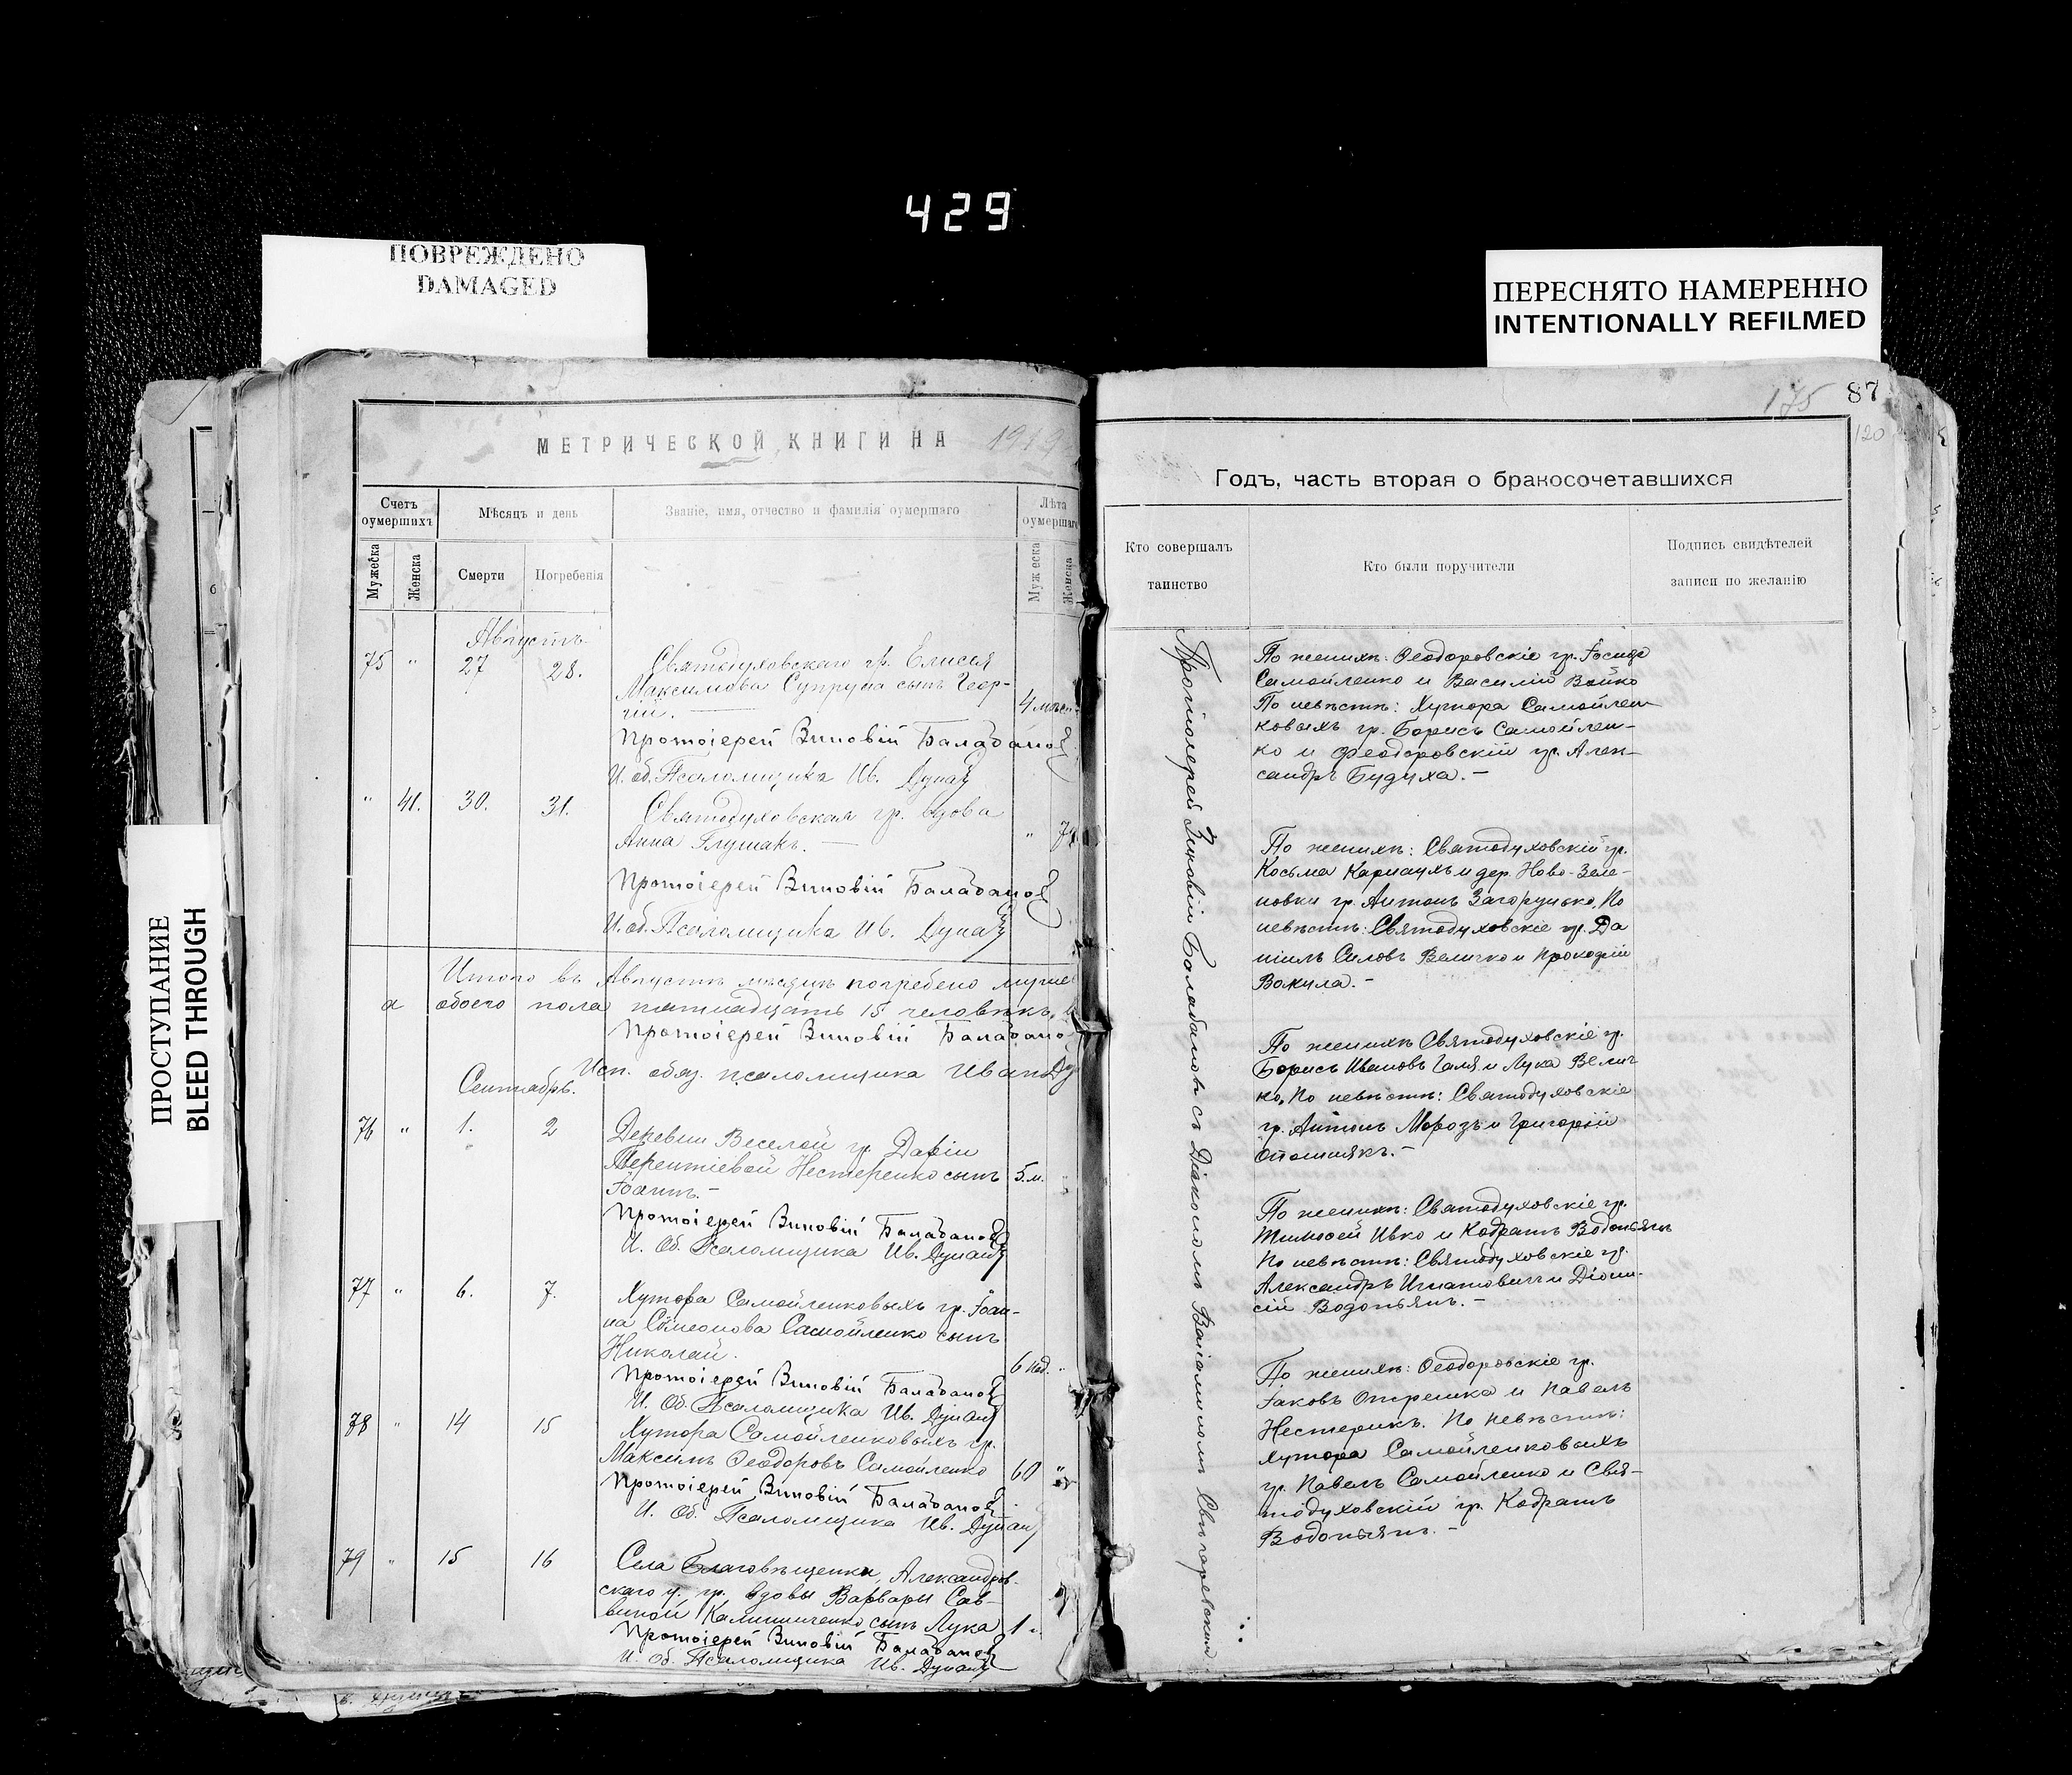 429
ПОВРЕЖДЕНО
DAMAGED
ПЕРЕСНЯТО НАМЕРЕННО
INTENTIONALLY REFILMED
ПРОСТУПАНИЕ
BLEED THROUGH
МЕТРИЧЕСКОЙ КНИГИ НА 1919
Счетъ оумершихъ
Мѣсяцъ и день
Званіе, имя, отчество и фамилія оумершаго
Лѣта оумершаго
Мужеска
Женска
Смерти
Погребенія
Мужеска
Женска
Августъ
75 " 27 28. Святодуховскаго гр. Елисея
Максимова Супруна сынъ Геор-
гій. 4 мѣс.
Протоіерей Зиновій Балабановъ
И. об. Псаломщика Ив. Дунай
" 41. 30. 31. Святодуховская гр. вдова
Анна Глушакъ. "
Протоіерей Зиновій Балабановъ
И. об. Псаломщика Ив. Дунай
Итого въ Августѣ мѣсяцѣ погребено
обоего пола пятнадцать 15 человѣкъ
Протоіерей Зиновій Балабано
Исп. обяз. псаломщика Иванъ Ду
Сентябрь.
76 " 1. 2 Деревни Веселой гр.
Терентіевой Нестеренко сынъ 5. м.
Іоаннъ. -
Протоіерей Зиновій Балабановъ
И. Об. Псаломщика Ив. Дунай
77 " 6. 7. Хутора Самойленковыхъ гр. Іоан-
на Симеонова Самойленко сынъ
Николай. 6 нед. "
Протоіерей Зиновій Балабановъ
И. Об. Псаломщика Ив. Дунай
78 " 14 15 Хутора Самойленковыхъ гр.
Максимъ Ѳеодоровъ Самойленко 60 "
Протоіерей Зиновій Балабановъ
И. Об. Псаломщика Ив. Дунай
79 " 15 16 Села Благовѣщенки, Александров-
скаго у. гр. вдовы Варвары Сав-
виной Калиниченко сынъ Лука 1
Протоіерей Зиновій Балабановъ
И. Об. Псаломщика Ив. Дунай
175 87
120
Годъ, часть вторая о бракосочетавшихся
Кто совершалъ
таинство
Кто были поручители
Подпись свидѣтелей
записи по желанію
Протоіерей Зиновій Балабановъ съ Діакономъ Веніаминомъ
По женихѣ: Ѳеодоровскіе гр. Іосифъ
Самойленко и Василій Бойко
По невѣстѣ: Хутора Самойлен-
ковыхъ гр. Борисъ Самойлен-
ко и Феодоровскій гр. Алек-
сандръ Будуха. -
По женихѣ: Святодуховскій гр.
Косьма Карнаухъ и дер. Ново-Зеле-
новки гр. Антонъ Загорулько, По
невѣстѣ: Святодуховскіе гр. Да
ніилъ Силовъ Величко и Прокофій
Вакула. -
По женихѣ Святодуховскіе гр.
Борисъ Ивановъ Галя и Лука Велич
ко, По невѣстѣ: Святодуховскіе
гр. Антонъ Морозъ и Григорій
Опошнякъ. -
По женихѣ: Святодуховскіе гр.
Тимофей Ивко и Кодратъ Водопьянъ
По невѣстѣ: Святодуховскіе гр.
Александръ Игнатовичъ и Діони-
сій Водопьянъ. -
По женихѣ: Ѳеодоровскіе гр.
Іаковъ Отрешка и Павелъ
Нестерикъ. По невѣстѣ:
Хутора Самойленковыхъ
гр. Павелъ Самойленко и Свя-
тодуховскій гр. Кодратъ
Водопьянъ. -